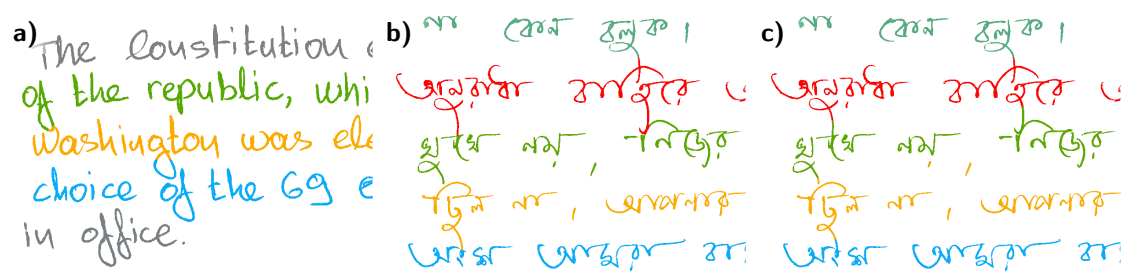 a)
The Constitution
of the republic, whi
washington was ele
choice of the 69 e
in office.
b)
না কোন বলুক।
অনুরাধা বাহিরে
মুখে নয়, নিজের
ছিল না, আপনার
অংশ আমরা
c)
না কোন বলুক।
অনুরাধা বাহিরে
মুখে নয়, নিজের
ছিল না, আপনার
অংশ আমরা